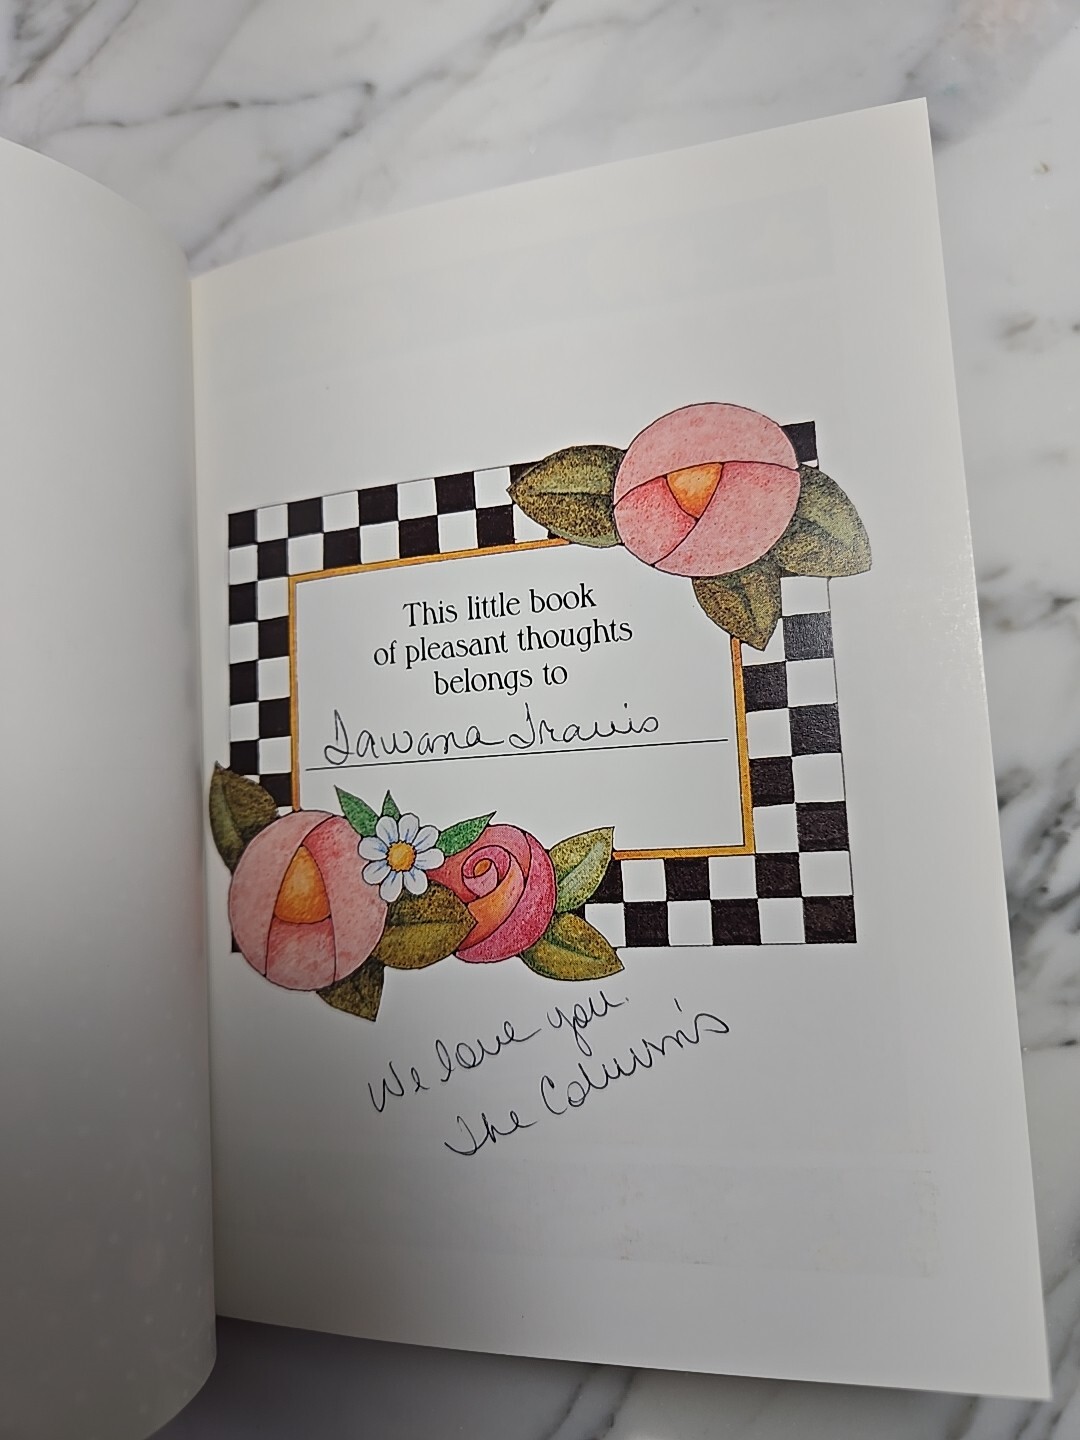 This little book
of pleasant thoughts
belongs to
Tawana Travis
We love you.
The Column's